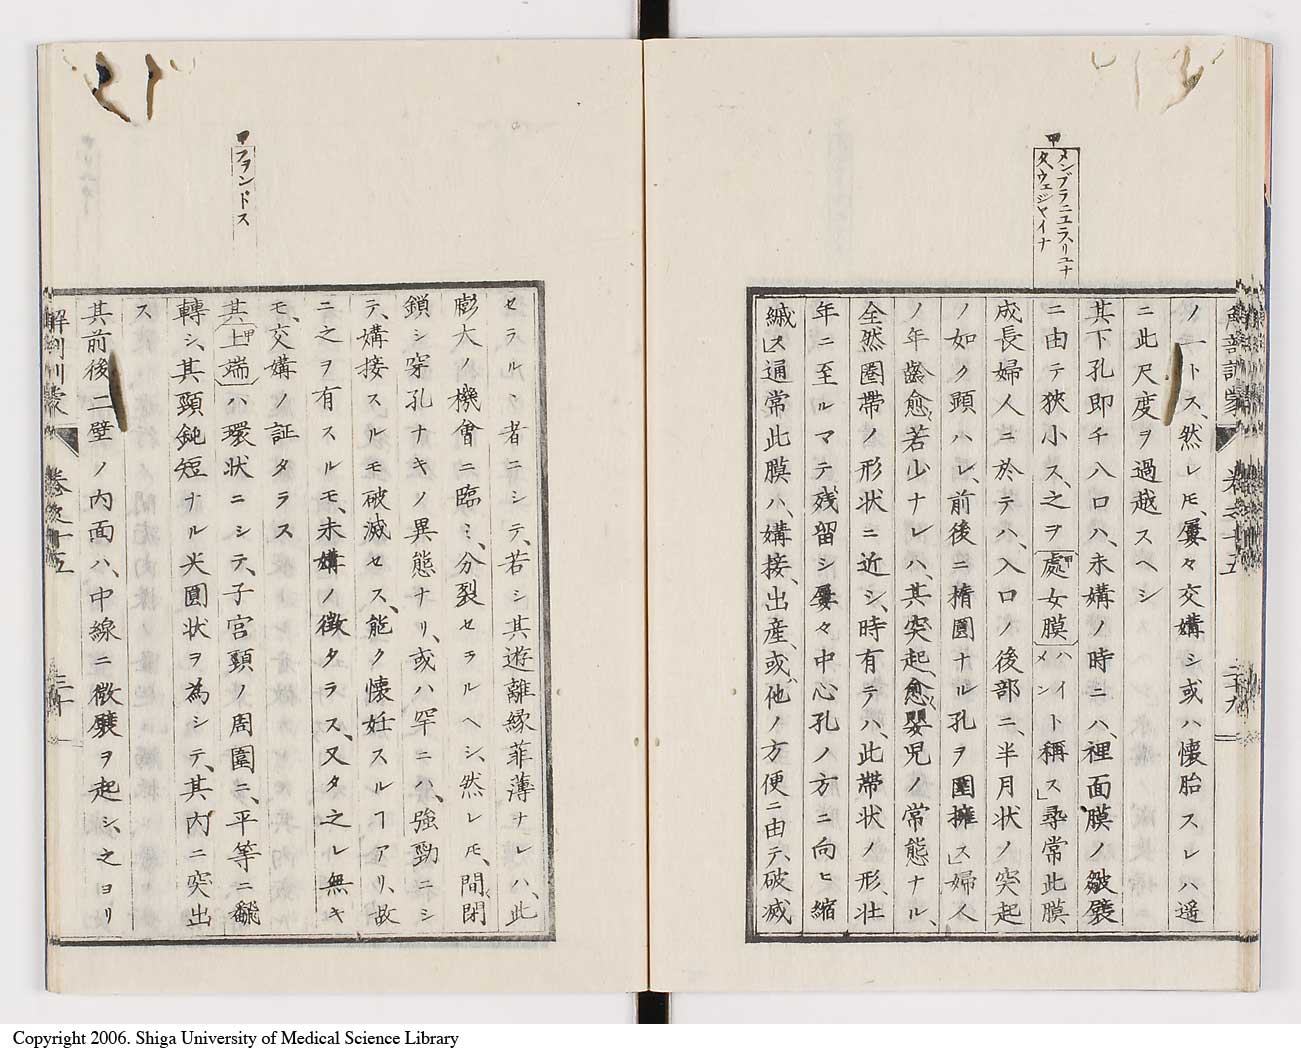 メンブラニユラスリユナ
タ、ウェジヤイナ
ノ一トス、然レ𪜈、屢々交媾シ或ハ懷胎スレハ遥
ニ此尺度ヲ過越スヘシ
其下孔即チ入口ハ、未媾ノ時ニハ、裡面膜ノ皺襞
ニ由テ狹小ス、之ヲ處女膜ハイメントト稱ス」尋常此膜
成長婦人ニ於テハ、入口ノ後部ニ、半月状ノ突起
ノ如ク顕ハレ、前後ニ楕圓ナル孔ヲ圍擁ス」婦人
ノ年齡愈、若少ナレハ、其突起、愈、嬰児ノ常態ナル、
全然圏帶ノ形状ニ近シ、時有テハ、此帶状ノ形、壮
年ニ至ルマテ残留シ屢々中心孔ノ方ニ向ヒ縮
緘ス」通常此膜ハ、媾接、出産、或ハ他ノ方便ニ由テ、破滅
解剖訓蒙
卷之十五
二十九
ファンドス
セラルヽ者ニシテ、若シ其遊離縁菲薄ナレハ、此
膨大ノ機會ニ臨ミ、分裂セラルヘシ、然レ𪜈、間閉
鎖シ穿孔ナキノ異態ナリ、或ハ罕ニハ、強勁ニシ
テ、媾接スルモ破滅セス、能ク懐妊スルヿアリ、故
ニ之ヲ有スルモ、未媾ノ徴タラス、又タ之レ無キ
モ、交媾ノ証タラス
其上端ハ環状ニシテ、子宮頸ノ周圍ニ、平等ニ飜
轉シ、其頸鈍短ナル尖圓状ヲ為シテ、其内ニ突出
ス
其前後二壁ノ内面ハ、中線ニ徴襞ヲ起シ、之ヨリ
解剖訓蒙
卷之十五
三十
Copyright 2006. Shiga University of Medical Science Library